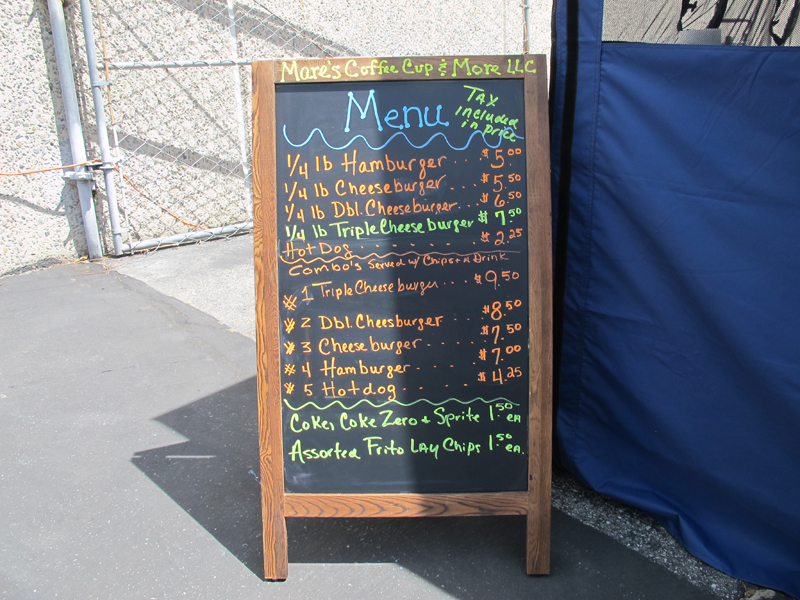 Mare's Coffee Cup & More LLC
Menu
TAX
included
in price
1/4 lb Hamburger . . . $5.00
1/4 lb Cheeseburger . . . $5.50
1/4 lb Dbl. Cheeseburger . . . $6.50
1/4 lb Triple Cheeseburger $7.50
Hot Dog . . . . . $2.25
Combo's Served w/ Chips + a Drink
#1 Triple Cheeseburger . . . $9.50
#2 Dbl. Cheesburger $8.50
#3 Cheeseburger . . . . $7.50
#4 Hamburger . . . . $7.00
#5 Hotdog . . . . . $4.25
Coke, Coke Zero + Sprite 1.50 ea
Assorted Frito Lay Chips 1.50 ea.